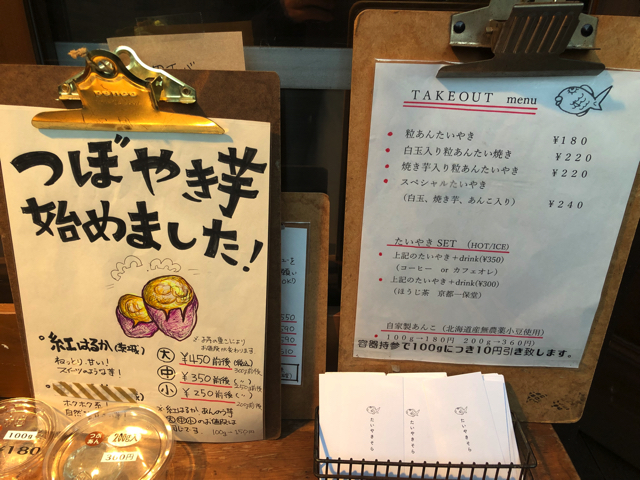 つぼやき芋
始めました!
※お芋の重さにより
お値段が変わります
・紅はるか(茨城)
ねっとり、甘い!
スイーツのような芋!
大 ¥450前後(税込)
300g前後
中 ¥350前後(〃)
250g前後
小 ¥250前後(〃)
200g前後
ホクホク系!
※紅はるか あんのう芋
100g
¥180
つぶあん
200g入
360円
TAKEOUT menu
・粒あんたいやき ¥180
・白玉入り粒あんたい焼き ¥220
・焼き芋入り粒あんたいやき ¥220
・スペシャルたいやき
(白玉、焼き芋、あんこ入り) ¥240
たいやき SET (HOT/ICE)
・上記のたいやき+drink(¥350)
(コーヒー or カフェオレ)
・上記のたいやき+drink(¥300)
(ほうじ茶 京都一保堂)
自家製あんこ(北海道産無農薬小豆使用)
100g→180円 200g→360円)
容器持参で100gにつき10円引き致します。
たいやきそら
たいやきそら
たいやきそら